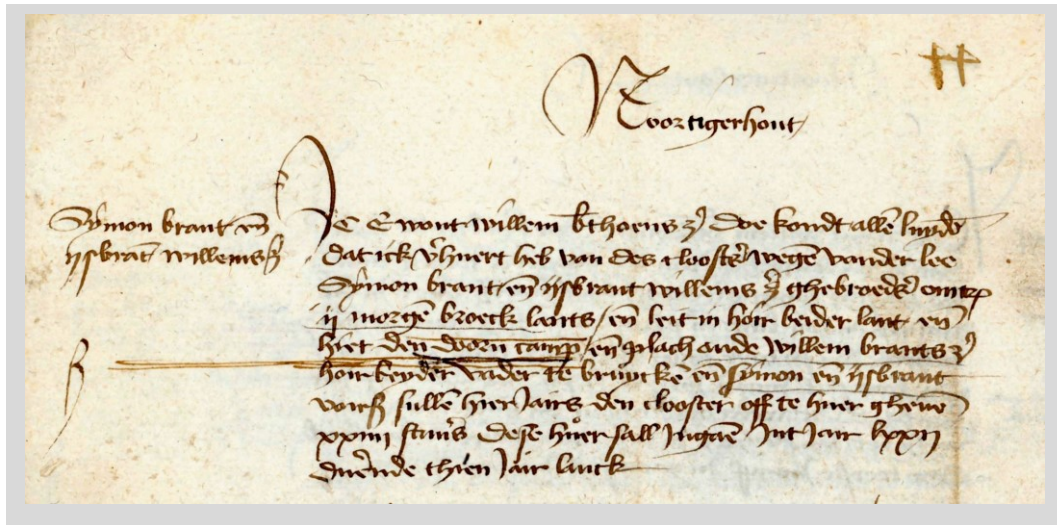 Noortigerhout
Symon brant en
ijsbrat willemsz
Ic Ewout willem bthoensz doe kondt alle luyde
dat ick vhuert heb van des cloosters wege vander lee
Symon brant en ijsbrant willems z ghebroeders omtr
ij morge broeck lants / en leit in hoir beider lant en
hiet den doorn camp / en plach oude willem brants z
hoir beyder vader te bruycke en symon en ijsbrant
vors sulle hier Jairs den clooster off te huer gheve
xxiiii stuvers Dese huer sall Ingae Int Jair lxxii
duerende thien Jair lanck